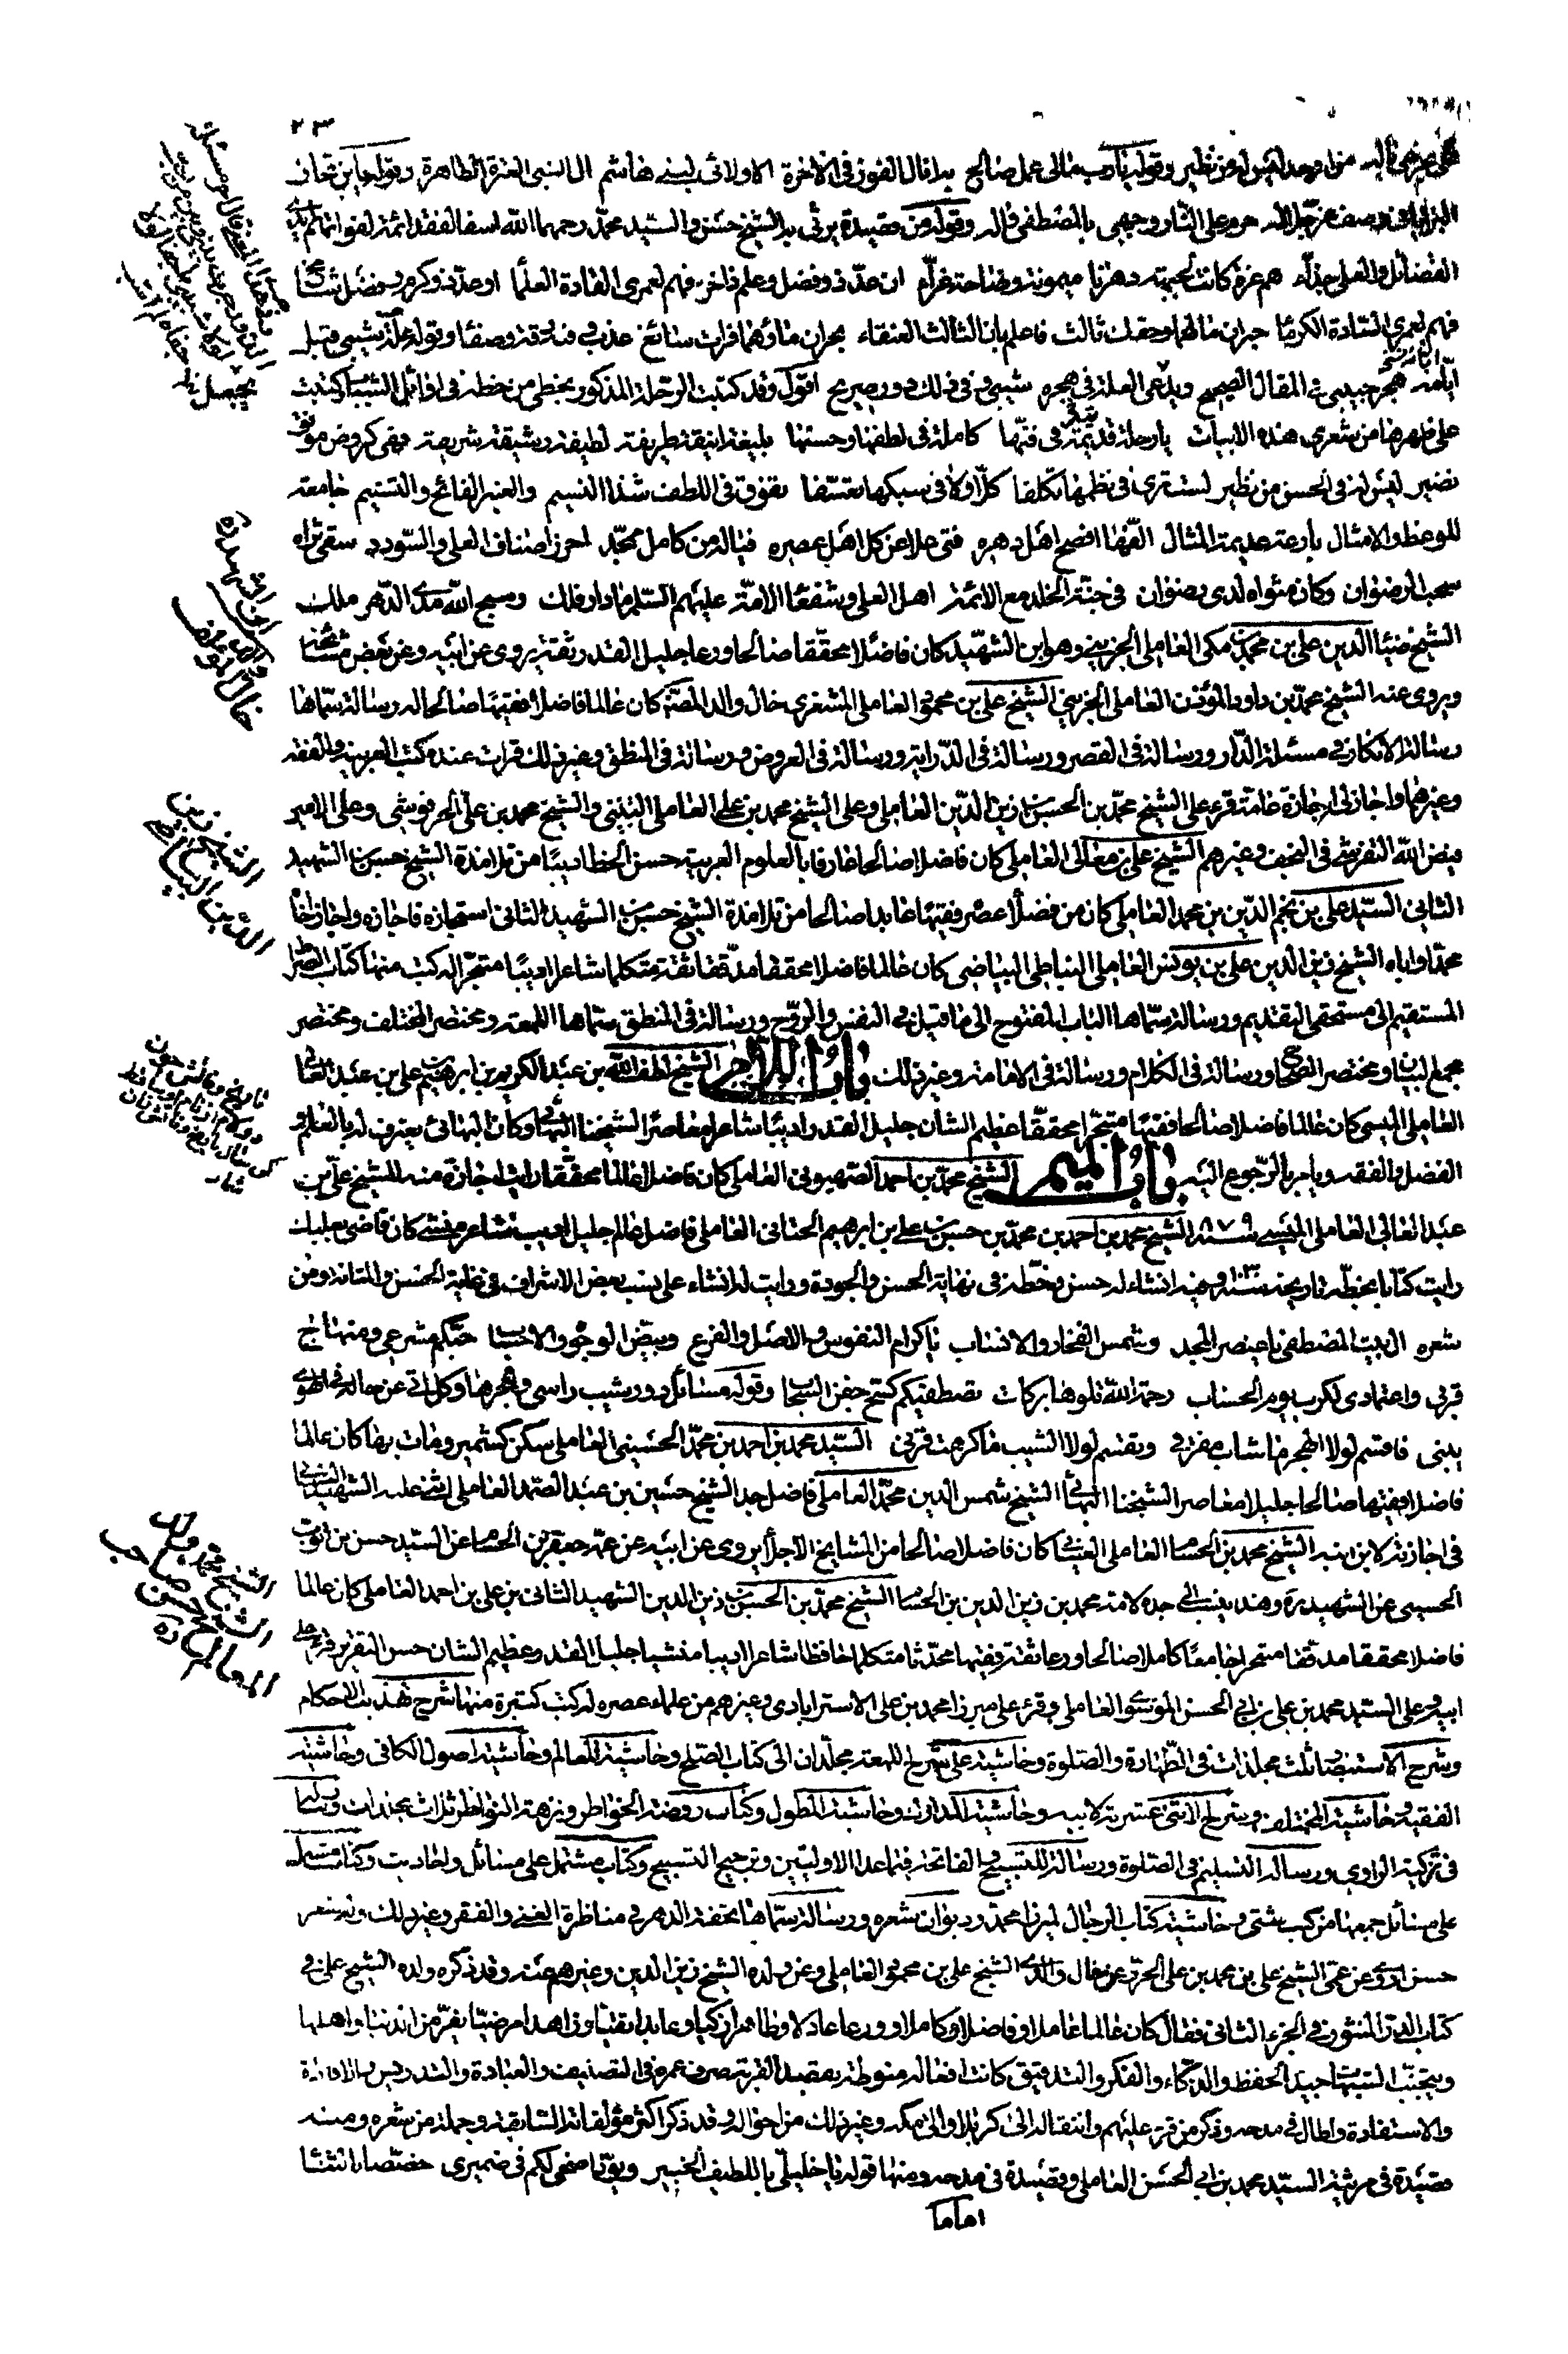 ٢٣
من اوحد ليس له من نظير وقوله يا رب مالى عمل صالح به انال الفوز فى الاخرة الا ولائى لبنى هاشم ال النبى العترة الطاهرة وقوله
وقوله من قصيدة يرثى بها الشيخ حسن والسيد محمد رحمهما الله اسفا لفقد ائمة لفواتهم
الفضائل والعلى هم غرة كانت لجبهة دهرنا ميمونة وضاحة غراء ان عد ذو فضل وعلم زاخر فهم لعمرى القادة العلما او عد ذو كرم وفضل
فهم لعمرى السادة الكرما حبران مالهما وحقك ثالث فاعلم بان الثالث العنقاء بحران ماؤهما فرات سائغ عذب وفيه رقة وصفا وقوله علة شيبى قبل
ايامه هجر حبيبى فى المقال الصحيح ويدعى العلة فى هجره شيبى وفى ذلك دور صريح اقول وقد كتبت الرحلة المذكورة بخطى من خطه فى اوائل الشباب وكتبت
على ظهرها من شعرى هذه الابيات يا رحلة قديمة فى فنها كاملة فى لطفها وحسنها بليغة انيقة ظريفة لطيفة رشيقة شريفة فهى كروض مونق
نضير ليس له فى الحسن من نظير لست ترى فى نظمها تكلفا كلا ولا فى سبكها تعسفا تفوق فى اللطف شذا النسيم والعنبر الفائح والتسنيم جامعة
للوعظ والامثال بارعة عديمة المثال الفها افصح اهل دهره فتى علا عن كل اهل عصره فياله من كامل ممجد احرز اصناف العلى والسودد سقى ثراه
سحب الرضوان وكان مثواه لدى رضوان فى جنة الخلد مع الائمة اهل العلى وشفعا الامة عليهم السلم ما دار فلك وسبح الله مدى الدهر ملك
الشيخ ضيا الدين على بن محمد بن مكى العاملى الجزينى وهو ابن الشهيد كان فاضلا محققا صالحا ورعا جليل القدر ثقة يروى عن ابيه وعن بعض مشائخنا
ويروى عنه الشيخ محمد بن داود المؤذن العاملى الجزينى الشيخ على بن محمود العاملى المشغرى خال والد المصنف كان عالما فاضلا فقيها صالحا له رسالة سماها
رسالة الانكار فى مسئلة الدار ورسالة فى القصر ورسالة فى الدراية ورسالة فى العروض ورسالة فى المنطق وغير ذلك قرات عنده كتب العربية والفقه
وغيرهما واجازنى اجازة عامة قرء على الشيخ محمد بن الحسن بن زين الدين العاملى وعلى الشيخ محمد بن على العاملى التبنينى والشيخ محمد بن على الحرفوشى وعلى الامير
فيض الله التفريشى فى النجف وغيرهم الشيخ على بن معالى العاملى كان فاضلا صالحا عارفا بالعلوم العربية حسن الخط اديبا من تلامذة الشيخ حسن بن الشهيد
الثانى السيد على بن نجم الدين بن محمد العاملى كان من فضلا عصره فقيها عابدا صالحا من تلامذة الشيخ حسن بن الشهيد الثانى استجازه فاجازه واجاز اخاه
محمدا واباه الشيخ زين الدين على بن يونس العاملى النباطى البياضى كان عالما فاضلا محققا مدققا ثقة متكلما شاعرا اديبا متبحرا له كتب منها كتاب الصراط
المستقيم الى مستحقى التقديم ورسالة سماها الباب المفتوح الى ما قيل فى النفس والروح ورسالة فى المنطق سماها اللمعة ومختصر المختلف ومختصر
مجمع البيان ومختصر الصحاح ورسالة فى الكلام ورسالة فى الامامة وغير ذلك باب اللام الشيخ لطف الله بن عبد الكريم بن ابرهيم بن على بن عبد العالى
العاملى الميسى كان عالما فاضلا صالحا فقيها متبحرا محققا عظيم الشان جليل القدر اديبا شاعرا معاصرا لشيخنا البهائى وكان البهائى يعترف له بالعلم و
الفضل والفقه ويامر بالرجوع اليه باب الميم الشيخ محمد بن احمد الصهيونى العاملى كان فاضلا عالما محققا رايت اجازة منه للشيخ على بن
عبد العالى العاملى الميسى سنة ٨٧٩ الشيخ محمد بن احمد بن محمد بن حسن بن على بن ابرهيم الحنانى العاملى فاضل عالم جليل اديب شاعر منشى كان قاضى بعلبك
رايت كتابا بخطه تاريخه سنة ١٠٣٠ وفيه انشاء له حسن وخطه فى نهاية الحسن والجودة ورايت له انشاء على نسب بعض الاشراف فى غاية الحسن والمتانة ومن
شعره ال بيت المصطفى يا عنصر المجد وشمس الفخار والانتساب يا كرام النفوس والاصل والفرع وبيض الوجوه والاحساب حبكم مشرعى ومنهاج
قربى واعتمادى لكرب يوم الحساب رحمة الله تلوها بركات تصطفيكم كسح جفن السحاب وقوله مسائل دور شيب راسى وهجرها وكل اتى عن حاله فى الهوى
يبنى فاقسم لولا الهجر ما شاب مفرقى وتقسم لولا الشيب ما كرهت قربى السيد محمد بن احمد بن محمد الحسينى العاملى سكن كشمير ومات بها كان عالما
فاضلا فقيها صالحا جليلا معاصرا لشيخنا البهائى الشيخ شمس الدين محمد العاملى فاضل جد الشيخ حسين بن عبد الصمد العاملى اثنى عليه الشهيد الثانى
فى اجازته لابن ابنه الشيخ محمد بن الحسام العاملى العينائى كان فاضلا صالحا من المشايخ الاجلا يروى عن ابيه عن عمه جعفر بن الحسام عن السيد حسن بن ايوب
الحسينى عن الشهيد ره وقد ينسب الى جده لامه محمد بن زين الدين بن الحسام الشيخ محمد بن الحسن بن زين الدين الشهيد الثانى بن على بن احمد العاملى كان عالما
فاضلا محققا مدققا متبحرا جامعا كاملا صالحا ورعا ثقة فقيها محدثا متكلما حافظا شاعرا اديبا منشيا جليل القدر وعظيم الشان حسن التقرير قرء على
ابيه وعلى السيد محمد بن على بن ابى الحسن الموسوى العاملى وقرء على ميرزا محمد بن على الاسترابادى وغيرهم من علماء عصره له كتب كثيرة منها شرح تهذيب الاحكام
وشرح الاستبصار ثلث مجلدات فى الطهارة والصلوة وحاشية على شرح اللمعة مجلدان الى كتاب الصلح وحاشية المعالم وحاشية اصول الكافى وحاشية
الفقيه وحاشية المختلف وشرح الاثنى عشرية لابيه وحاشية المدارك وحاشية المطول وكتاب روضة الخواطر ونزهة النواظر ثلاث مجلدات ورسالة
فى تزكية الراوى ورسالة التسليم فى الصلوة ورسالة التسبيح والفاتحة فيما عدا الاوليين وترجيح التسبيح وكتاب مشتمل على مسائل واحاديث وكتاب مشتمل
على مسائل جمعها من كتب شتى وحاشية كتاب الرجال لميرزا محمد وديوان شعره ورسالة سماها تحفة الدهر فى مناظرة الغنى والفقر وغير ذلك وله شعر
حسن اروى عن عمى الشيخ على بن محمد بن على الحر وعن خال والدى الشيخ على بن محمود العاملى وعن ولده الشيخ زين الدين وغيرهم عنه وقد ذكره ولده الشيخ على فى
كتاب الدر المنثور فى الجزء الثانى فقال كان عالما عاملا وفاضلا وكاملا وورعا عادلا وطاهرا زكيا وعابدا تقيا وزاهدا مرضيا يفر من الدنيا واهلها
ويتجنب الشبهات جيد الحفظ والذكاء والفكر والتدقيق كانت افعاله منوطة بقصد القربة صرف عمره فى التصنيف والعبادة والتدريس والافادة
والاستفادة واطال فى مدحه وذكر من قرء عليهم وانتقاله الى كربلا والى مكة وغير ذلك من احواله وقد ذكر اكثر مؤلفاته السابقة وجملة من شعره ومنه
قصيدة فى مرثية السيد محمد بن ابى الحسن العاملى وقصيدة فى مدحه ومنها قوله يا خليلى باللطيف الخبير وبود اضحى لكم فى ضميرى خصصا بالثنا
اماما